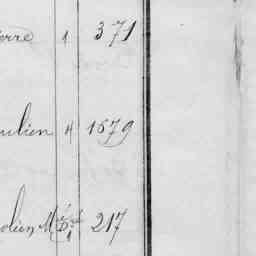 erre 1 371
ulien 4 1579
olien 217